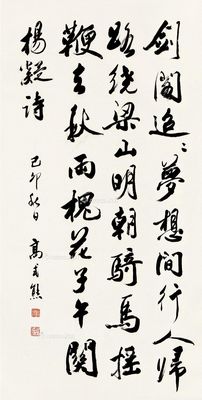 剑阁迢迢梦想间行人归
路绕梁山明朝骑马摇
鞭去秋雨槐花子午关
杨凝诗
己卯秋日